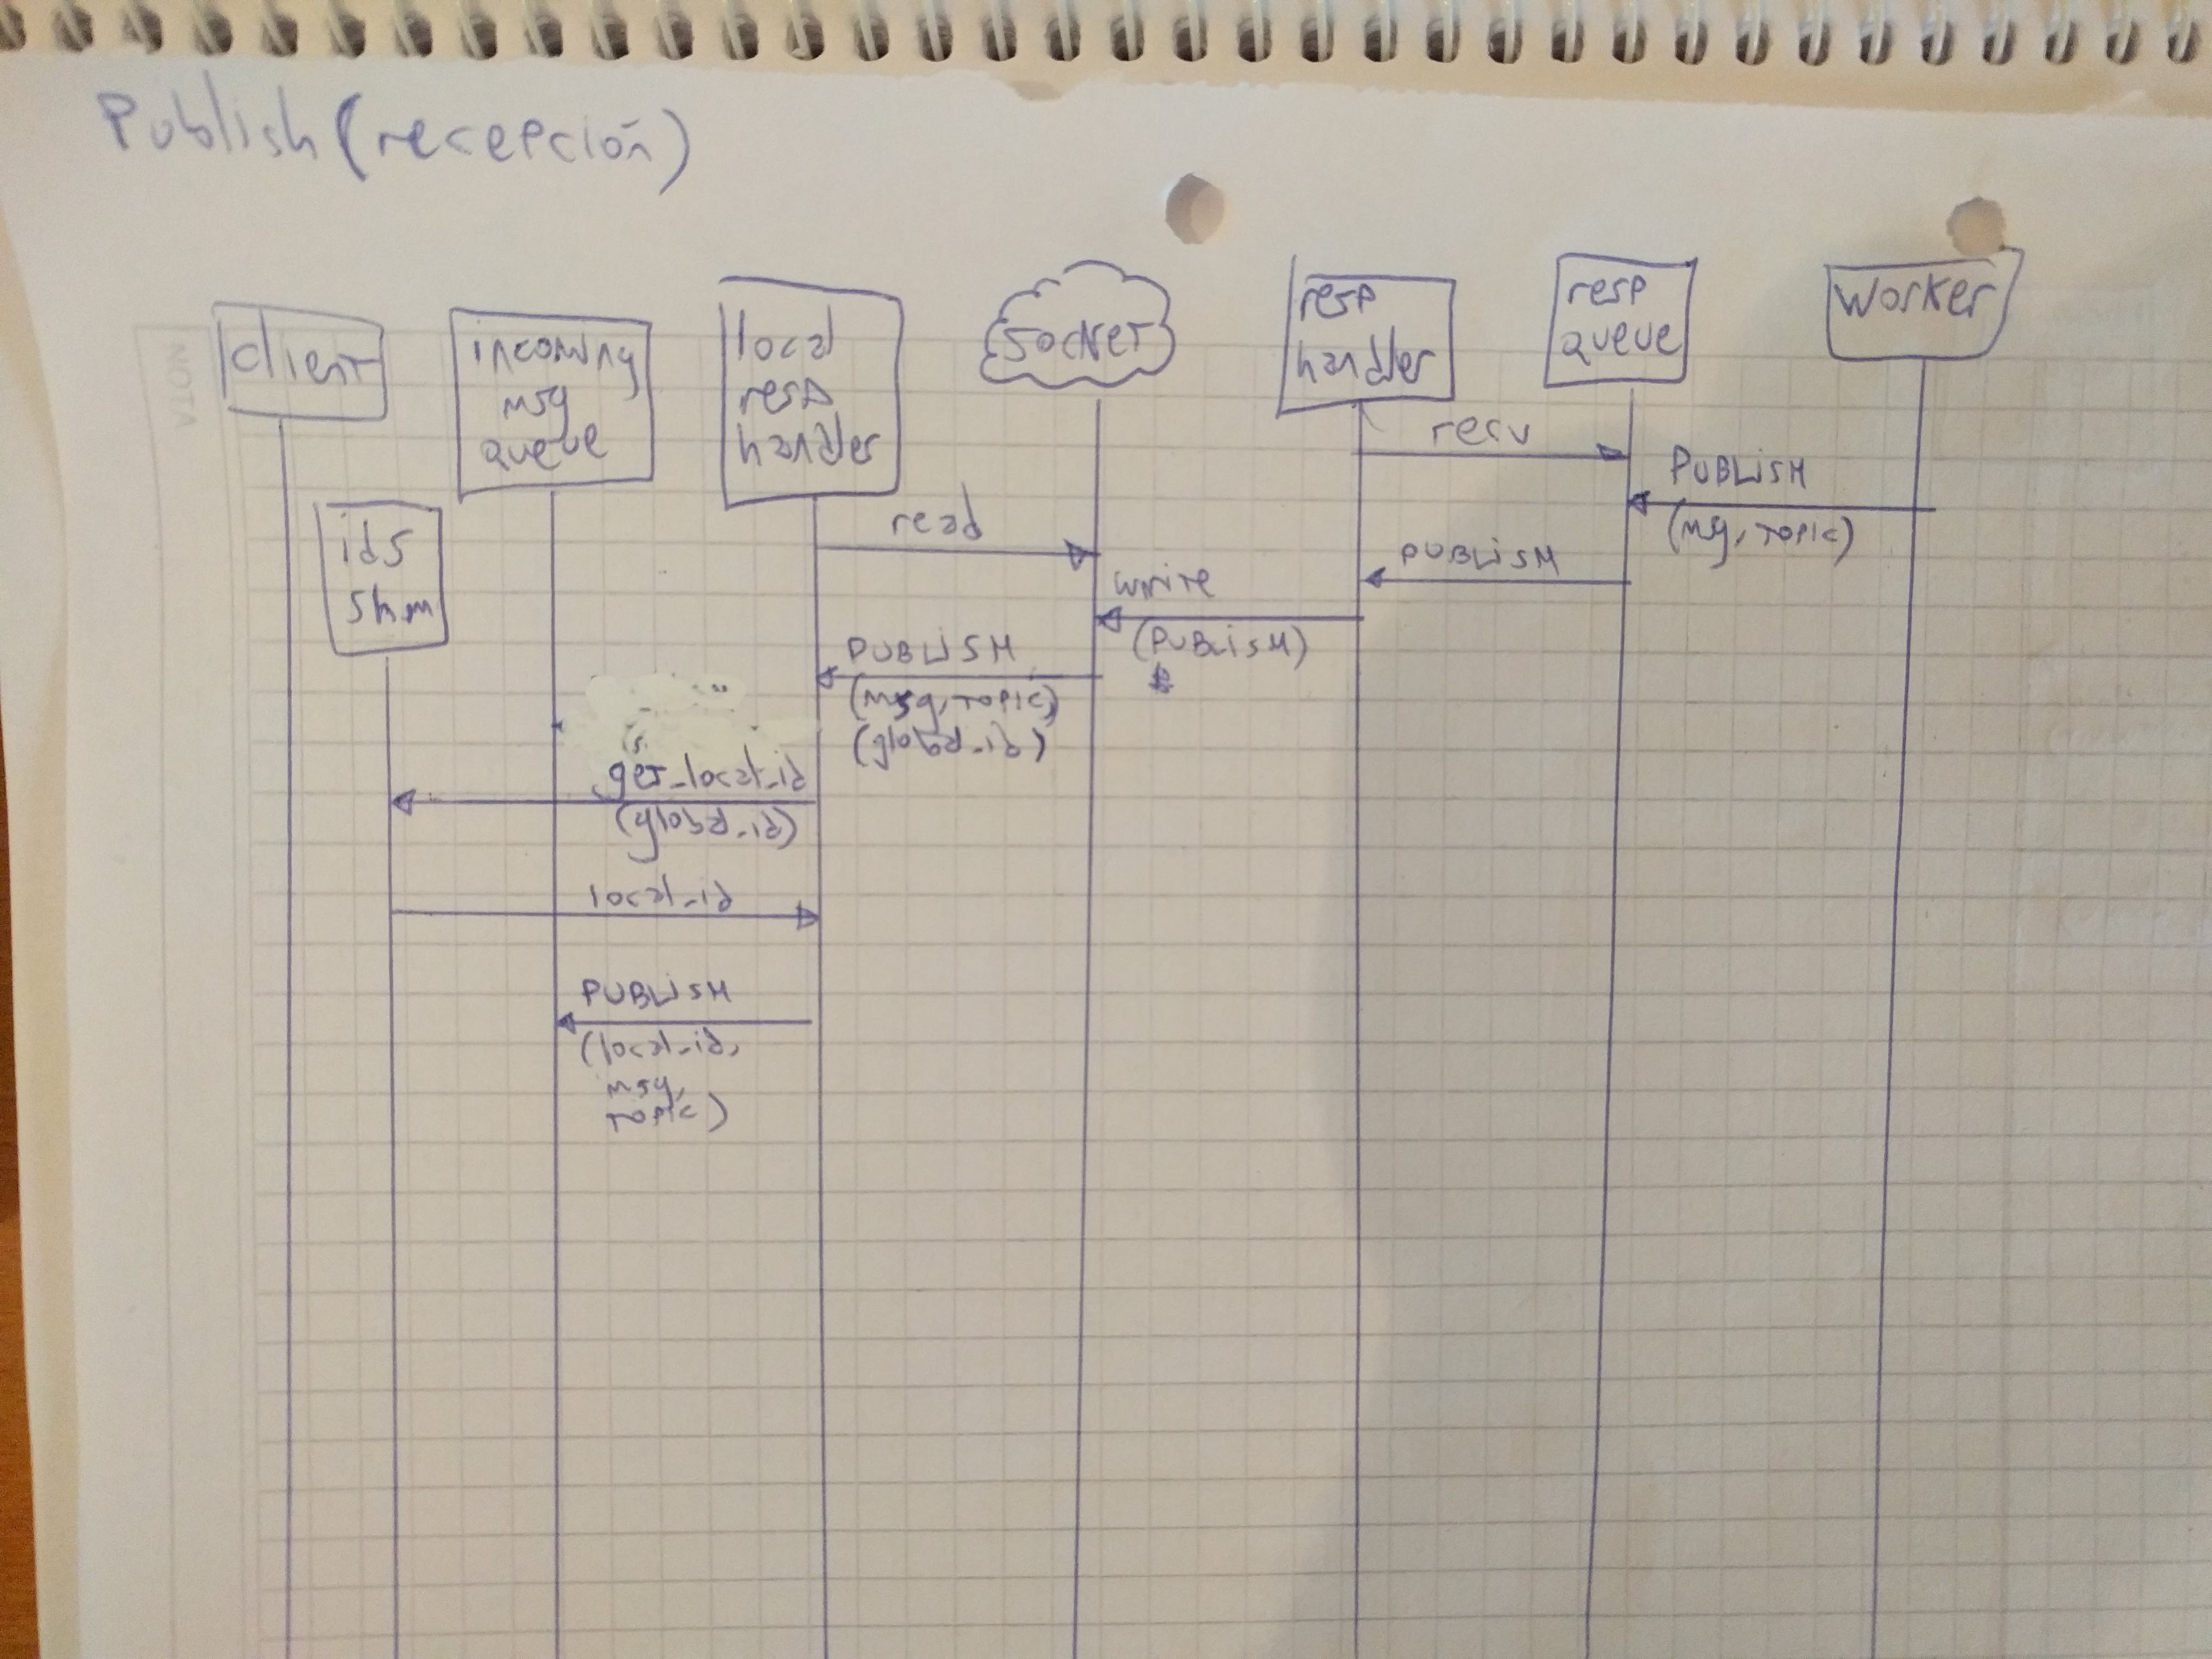 Publish (recepción)
client
incoming
msg
queue
local
resp
handler
socket
resp
handler
resp
queue
worker
NOTA
ids
shm
recv
PUBLISH
(msg, TOPIC)
read
PUBLISH
write
(PUBLISH)
PUBLISH
(msg, TOPIC)
(global_id)
get_local_id
(global_id)
local_id
PUBLISH
(local_id,
msg,
TOPIC)